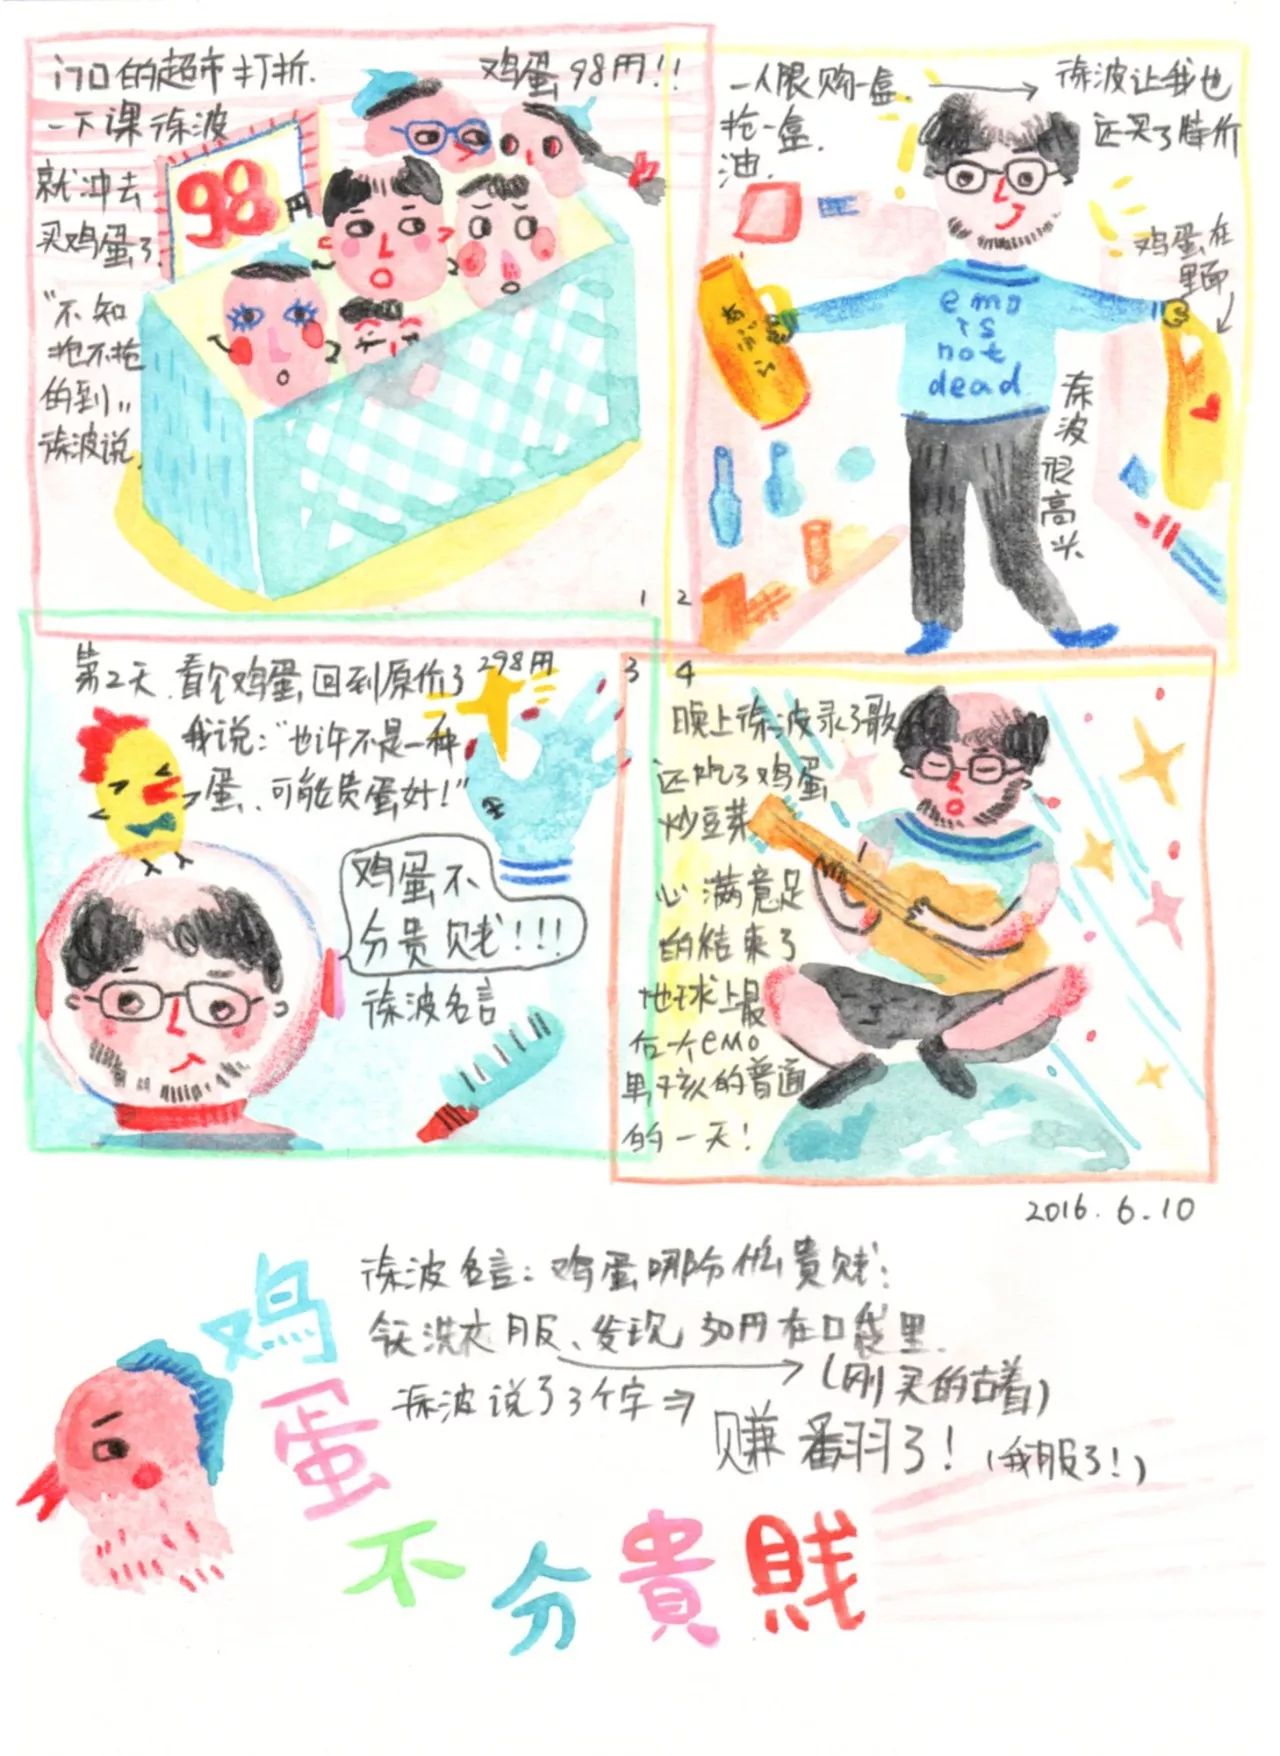 门口的超市打折.
鸡蛋 98円!!
一下课徐波
就冲去
买鸡蛋了.
"不知
抢不抢
的到"
徐波说.
98
円
1
一人限购一盒.
抢一盒
油.
徐波让我也
还买了降价
鸡蛋在
里面
emo
is
not
dead
徐波很高兴
2
第2天.看令鸡蛋回到原价了298円
我说:"也许不是一种
蛋、可能贵蛋好!"
鸡蛋不
分贵贱!!!
徐波名言
3
4
晚上徐波录了歌
还吃了鸡蛋
炒豆芽
心满意足
的结束了
地球上最
后一个emo
男孩的普通
的一天!
2016.6.10
徐波名言:鸡蛋哪分什么貴贱;
今天洗衣服、发现50円在口袋里.
(刚买的古着)
徐波说了3个字⇒
赚翻了! (我服了!)
鸡蛋不分貴賤